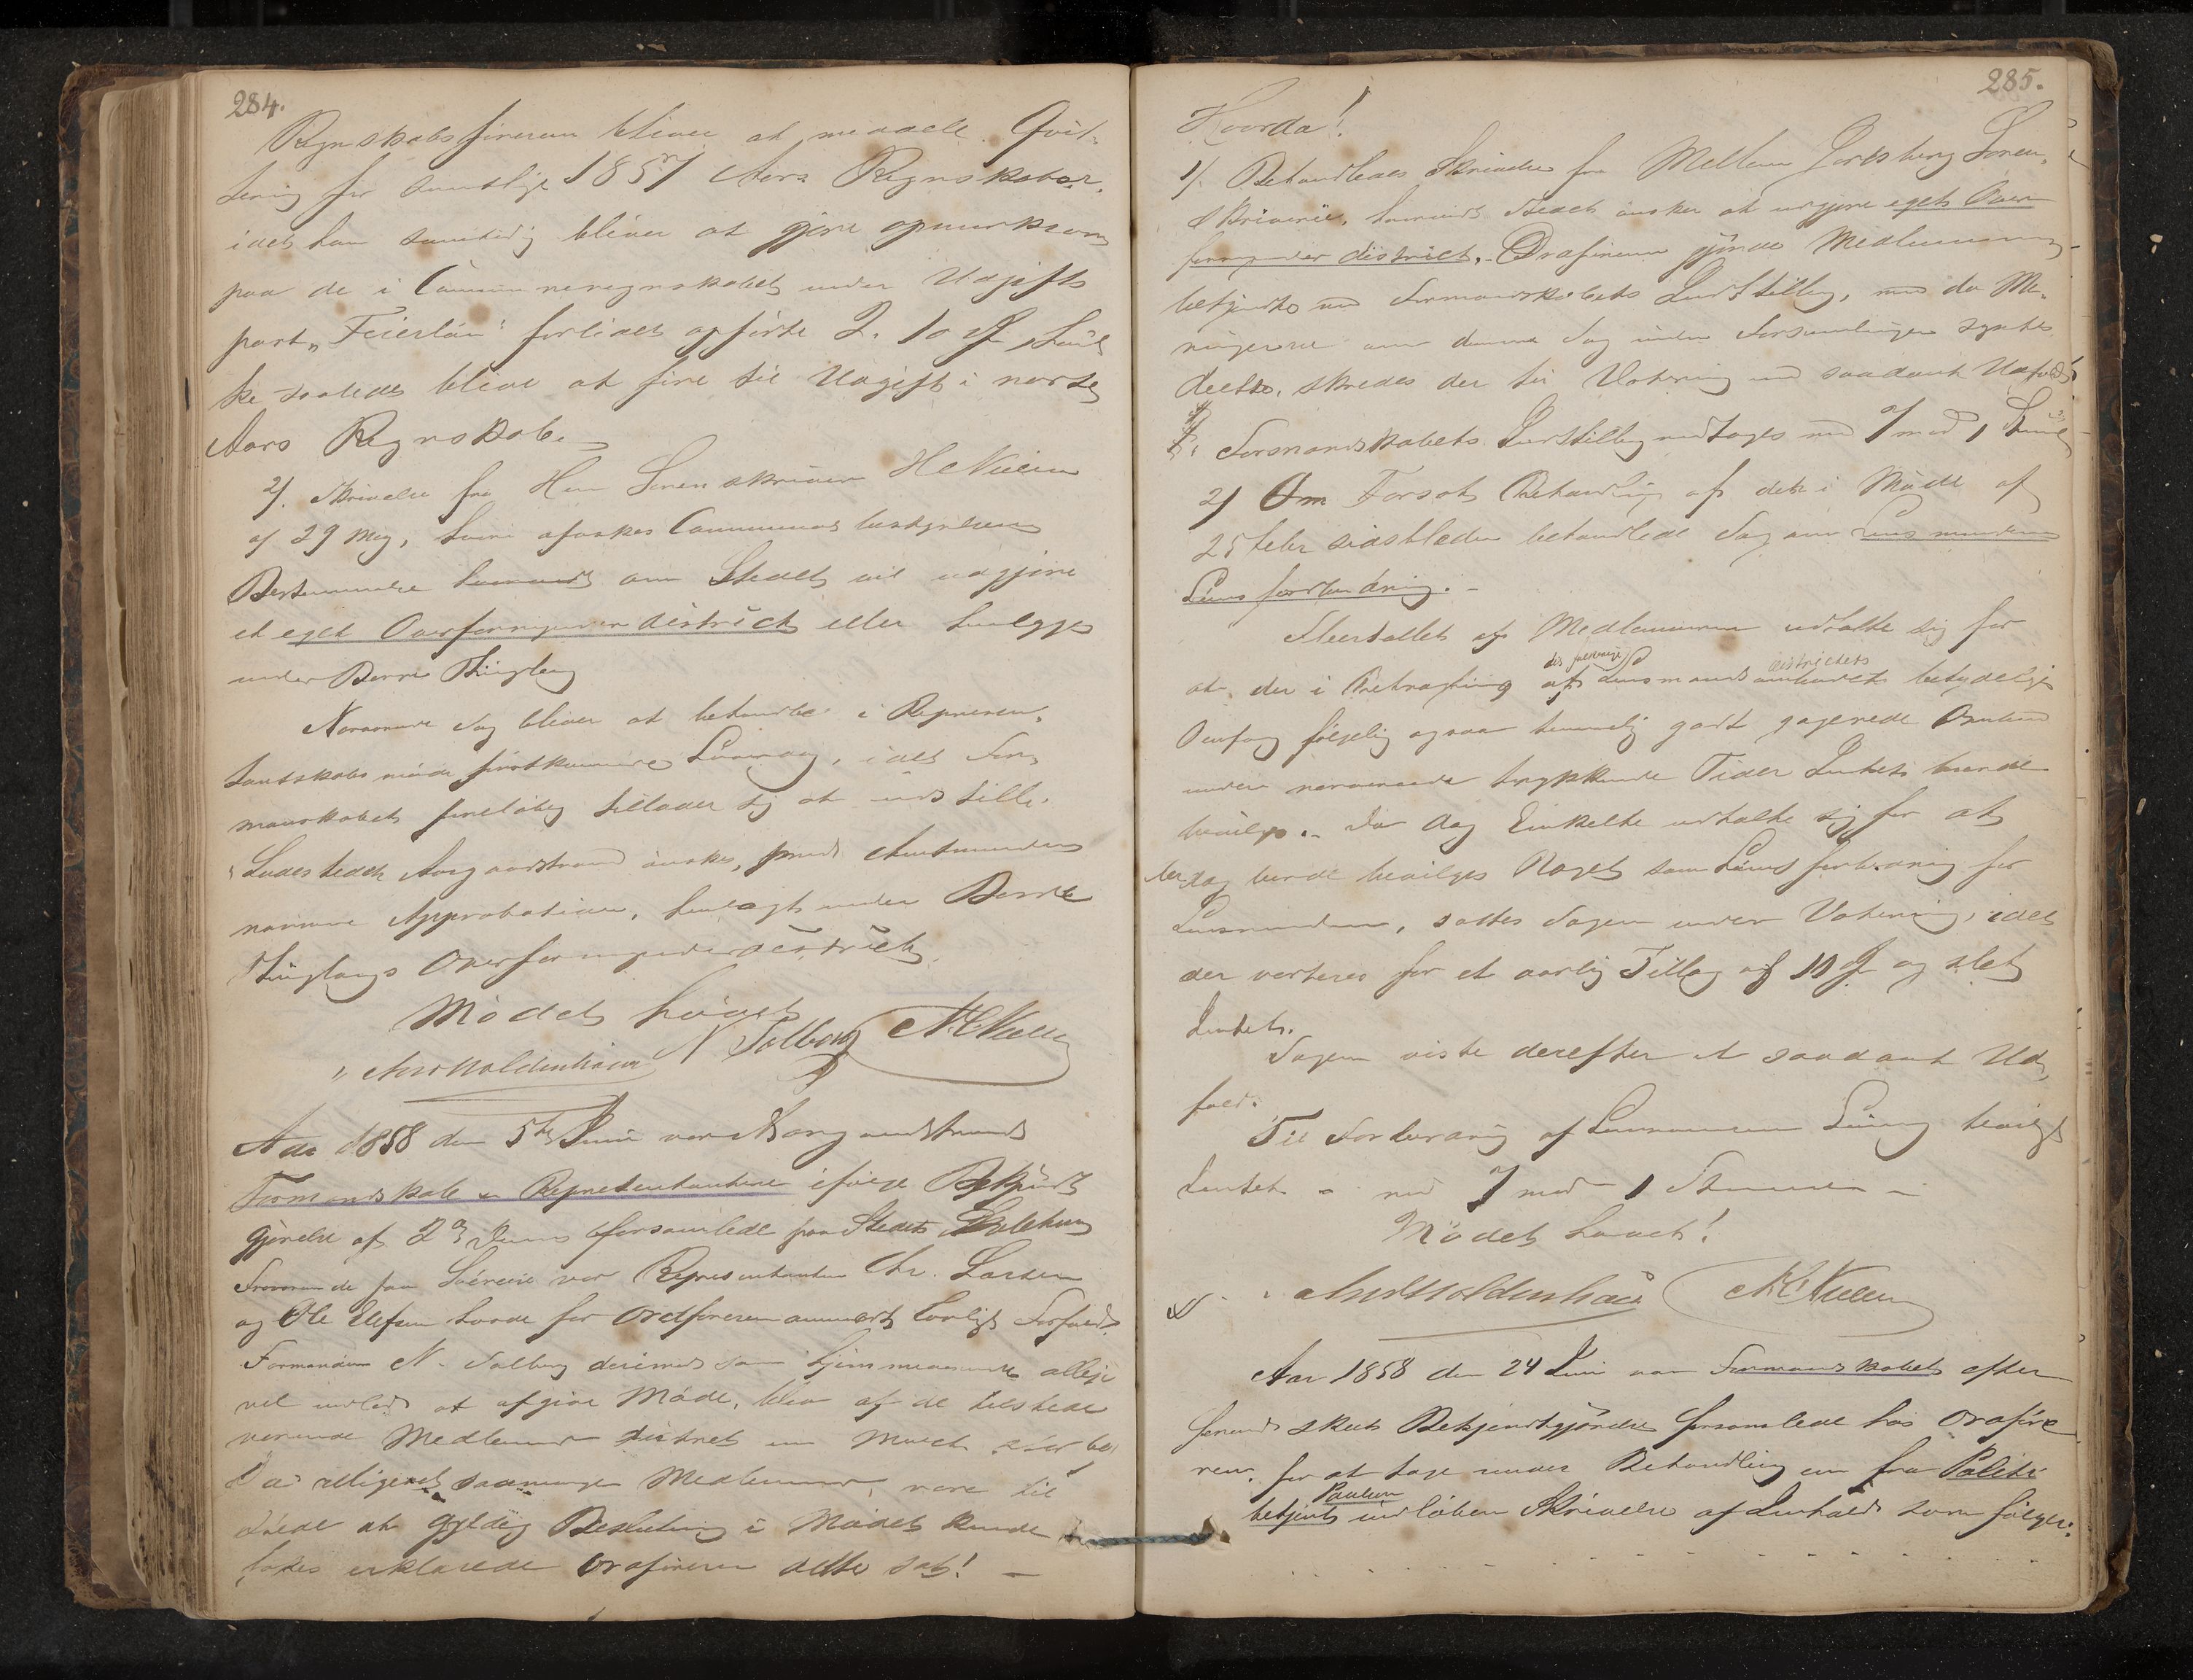 284.
Regnskabsføreren bliver at meddele Qvit-
tering for samtlige 1857 Aars Regnskaber,
idet han samtidig bliver at gjøre opmærksom
paa de i Communeregnskabet under Udgifts
post "Feierløn" forlidet opførte 2. 10 ß,
ke saaledes bliver at føre til Udgift i næste
Aars Regnskab.
2/. Skrivelse fra Herr Sorenskriver
af 29 Mai, hvori afæskes Communebestyrelsens
Bestemmelse om Stedet vil udgjøre
et eget Overformynderdistrict eller henlægges
under Borre Thinglag
Nærværende Sag bliver at behandles i Repræsen-
tantskabsmøde førstkommende Lørdag, idet For-
mandskabet foreløbig tillader sig at indstille:
"Ladestedet Aasgaardstrand ønskes, med Amtmandens
Approbation, henlagt under Borre
Thinglags Overformynderdistrict.
Mødet hævet
N Solberg
Aar 1858 den 5te Juni var Aasgaardstrands
Formandskab og Repræsentantere ifølge Bekjendt
gjørelse af 2 Juni forsamlede paa Stedets
Fraværende paa Søereise var Repræsentanten Chr. Larsen
og Ole havde for Ordføreren anmeldt lovligt Forfald.
Formanden N. Solberg derimod som hjemmeværende allige
vel undlod at afgive Møde, blev af de tilstede
værende Medlemmer
Da alligevel saamange Medlemmer vare til
stede at gyldig Beslutning i Mødet kunde
tages erklærede Ordføreren dette sat! —
285.
Hvorda!
1/. Behandledes Skrivelse fra Mellem Jarlsberg Soren-
skriverie, hvorvidt Stedet ønsker at udgjøre eget Over
formynder district. Ordføreren gjorde Medlemmerne
bekjendte med Formandskabets Indstilling, men da Me-
ningerne om denne Sag inden Forsamlingen syntes
deelte, skredes der til Votering med saadant Udfald:
Formandskabets Indstilling vedtages med 7 mod 1
2/ Om Forsat Behandling af den i Møde af
25 Febr sidstleden behandlede Sag om Lensmandens
Løns forbedring. -
Fleertallet af Medlemmerne udtalte sig for
at der i Betragtning af Lensmands districtets betydelige
Omfang følgelig ogsaa temmelig godt gagerede Ombud
under nærværende trykkende Tider Intet burde
bevilges. - Da dog Enkelte udtalte sig for at
der dog burde bevilges Noget som Løns forbedring for
Lensmanden, sattes Sagen under Votering, idet
der voteres for et aarlig Tillæg af 10 og slet
Intet.
Sagen viste derefter et saadant Ud-
fald:
Til Forbedring af Lensmandens Løning bevilges
Intet - med 7 mod 1 Stemmer -
Mødet hævet!
Aar 1858 den 24 Juni var Formandskabet efter
forud skeet Bekjendtgjørelse forsamlede hos Ordføre
ren, for at tage under Behandling en fra Politi
betjent Paulsen indløben Skrivelse af Indhold som følger: